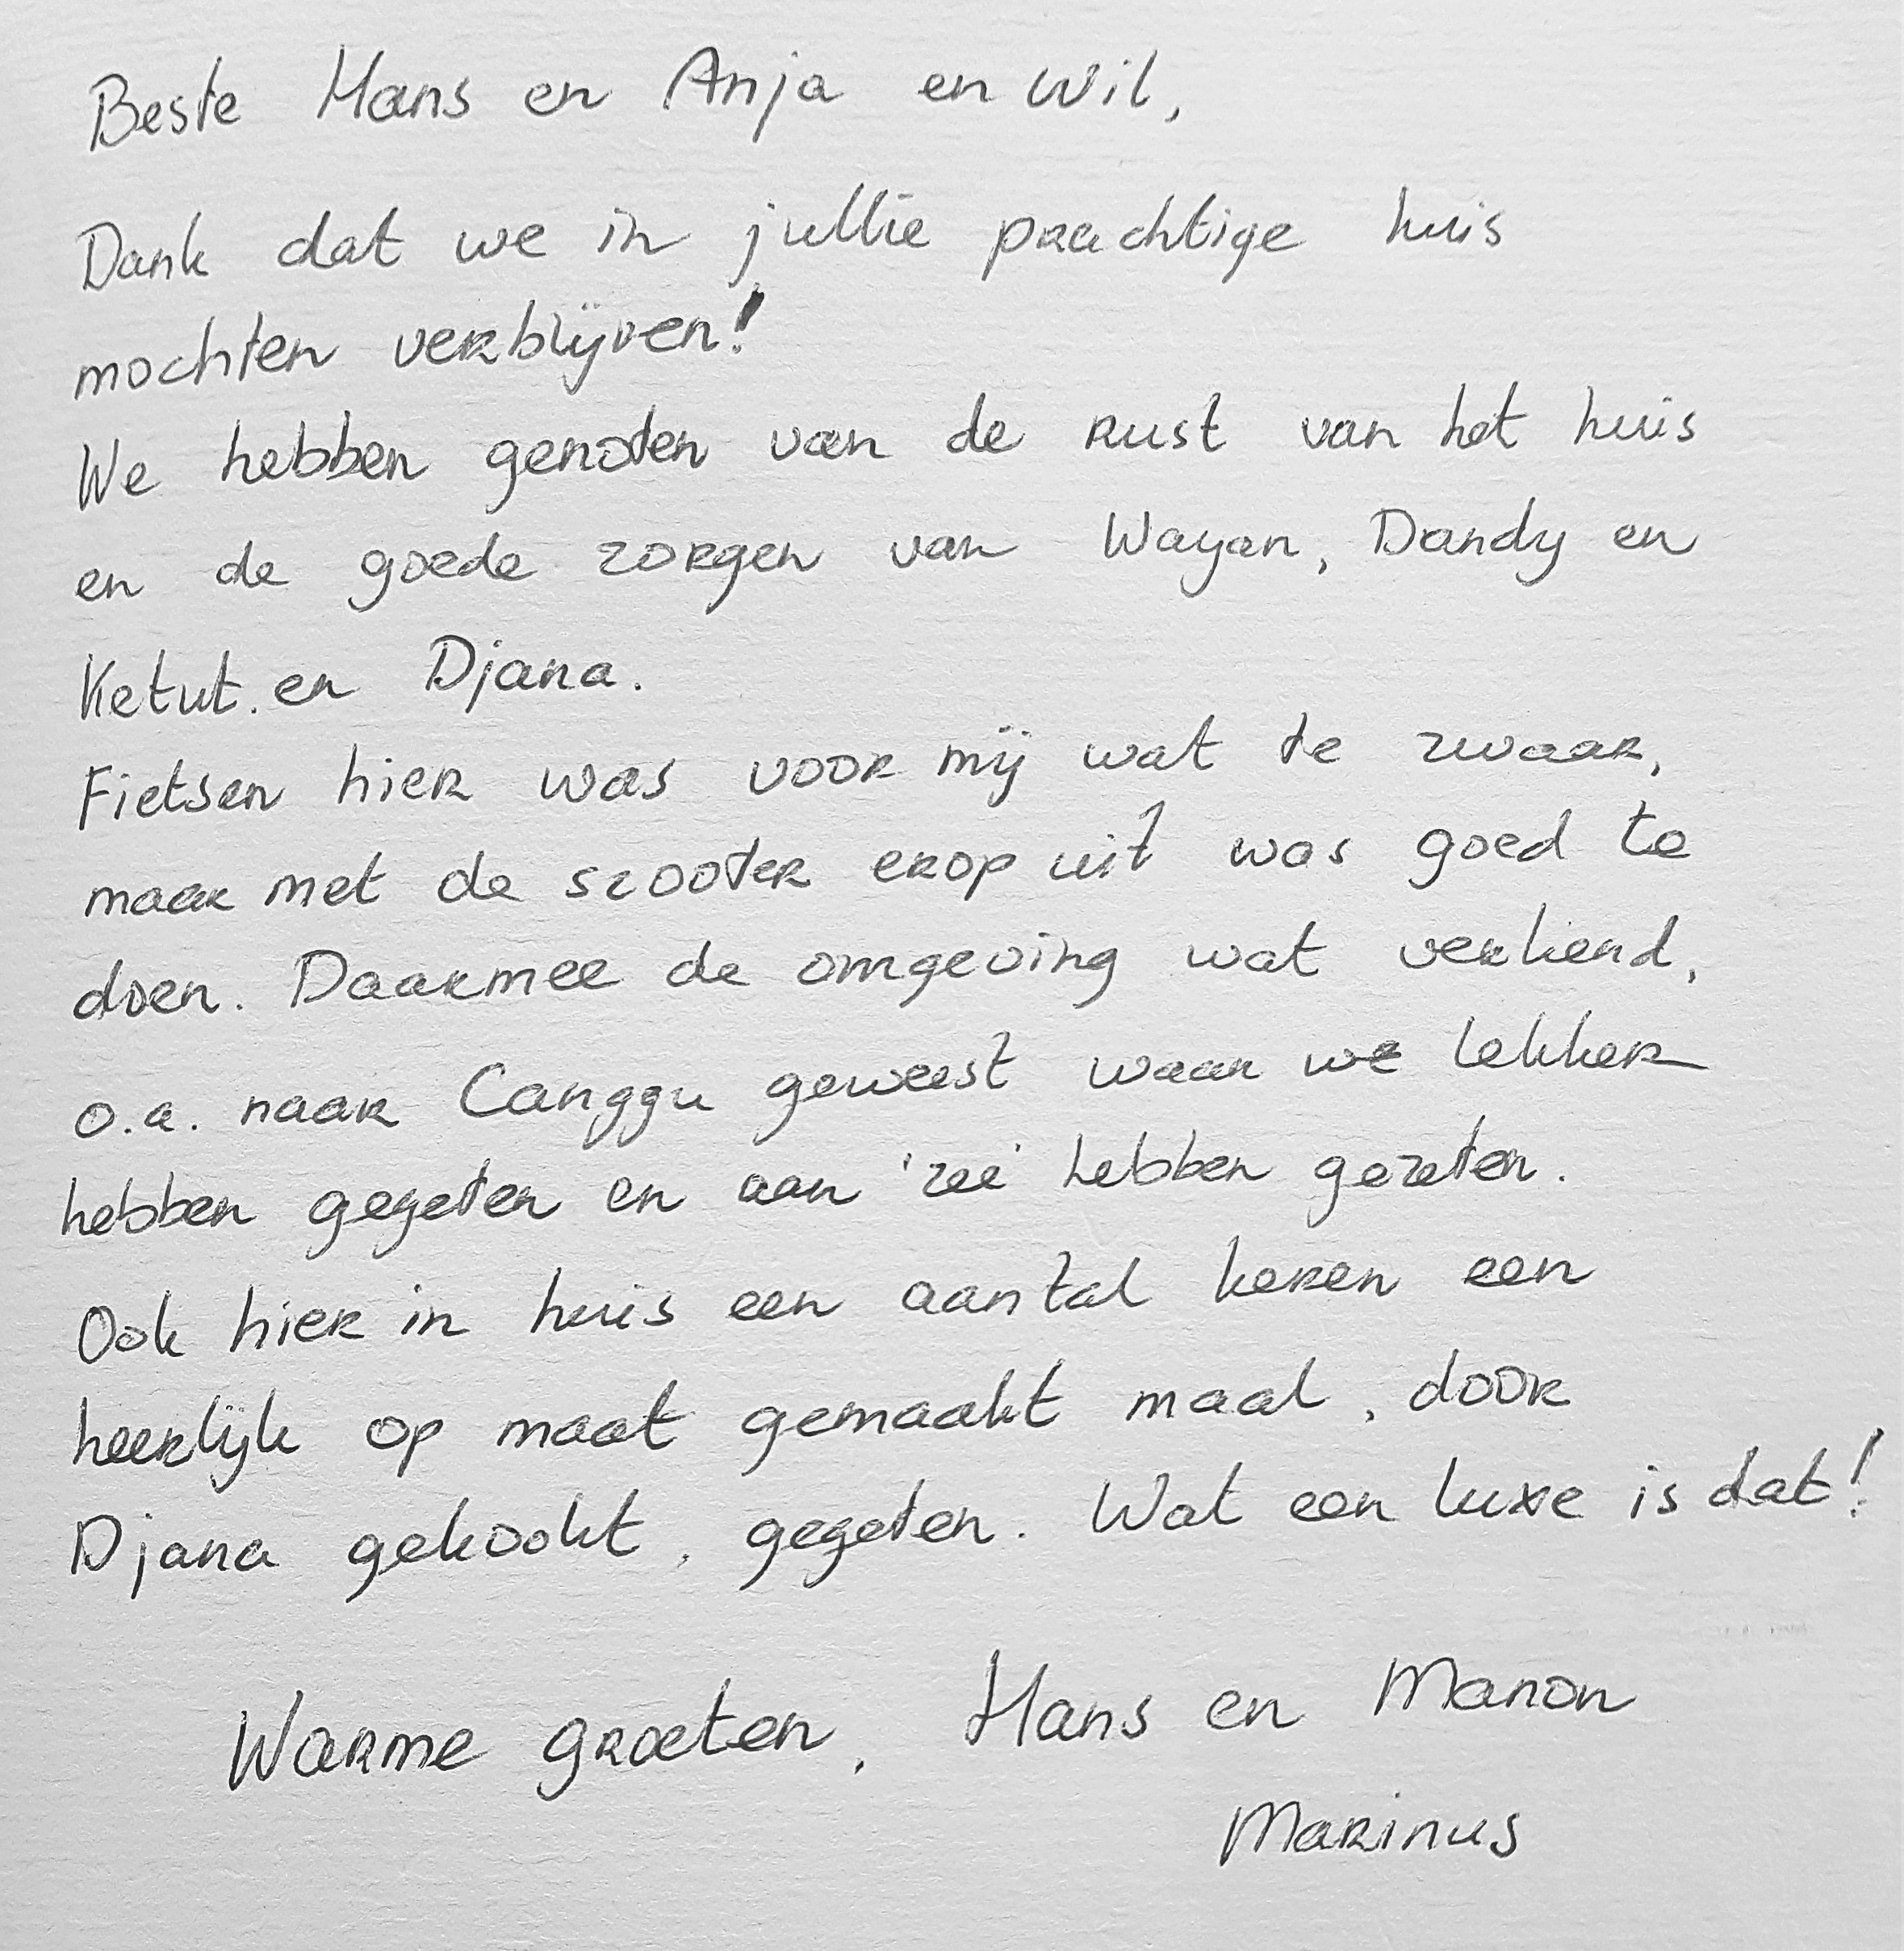 Beste Hans en Anja en Wil,
Dank dat we in jullie prachtige huis
mochten verblijven!
We hebben genoten van de rust van het huis
en de goede zorgen van Wayan, Dandy en
Ketut. en Djana.
Fietsen hier was voor mij wat te zwaar,
maar met de scooter erop uit was goed te
doen. Daarmee de omgeving wat verkend,
o.a. naar Canggu geweest waar we lekker
hebben gegeten en aan 'zee' hebben gezeten.
Ook hier in huis een aantal keren een
heerlijk op maat gemaakt maal, door
Djana gekookt, gegeten. Wat een luxe is dat!
Warme groeten, Hans en Manon
Marinus